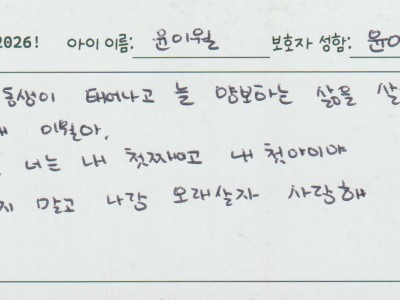 2026! 아이 이름: 윤이월 보호자 성함: 윤이
동생이 태어나고 늘 양보하는 삶을 살
이월아,
너는 내 첫째고 내 첫아이야
지 말고 나랑 오래살자 사랑해